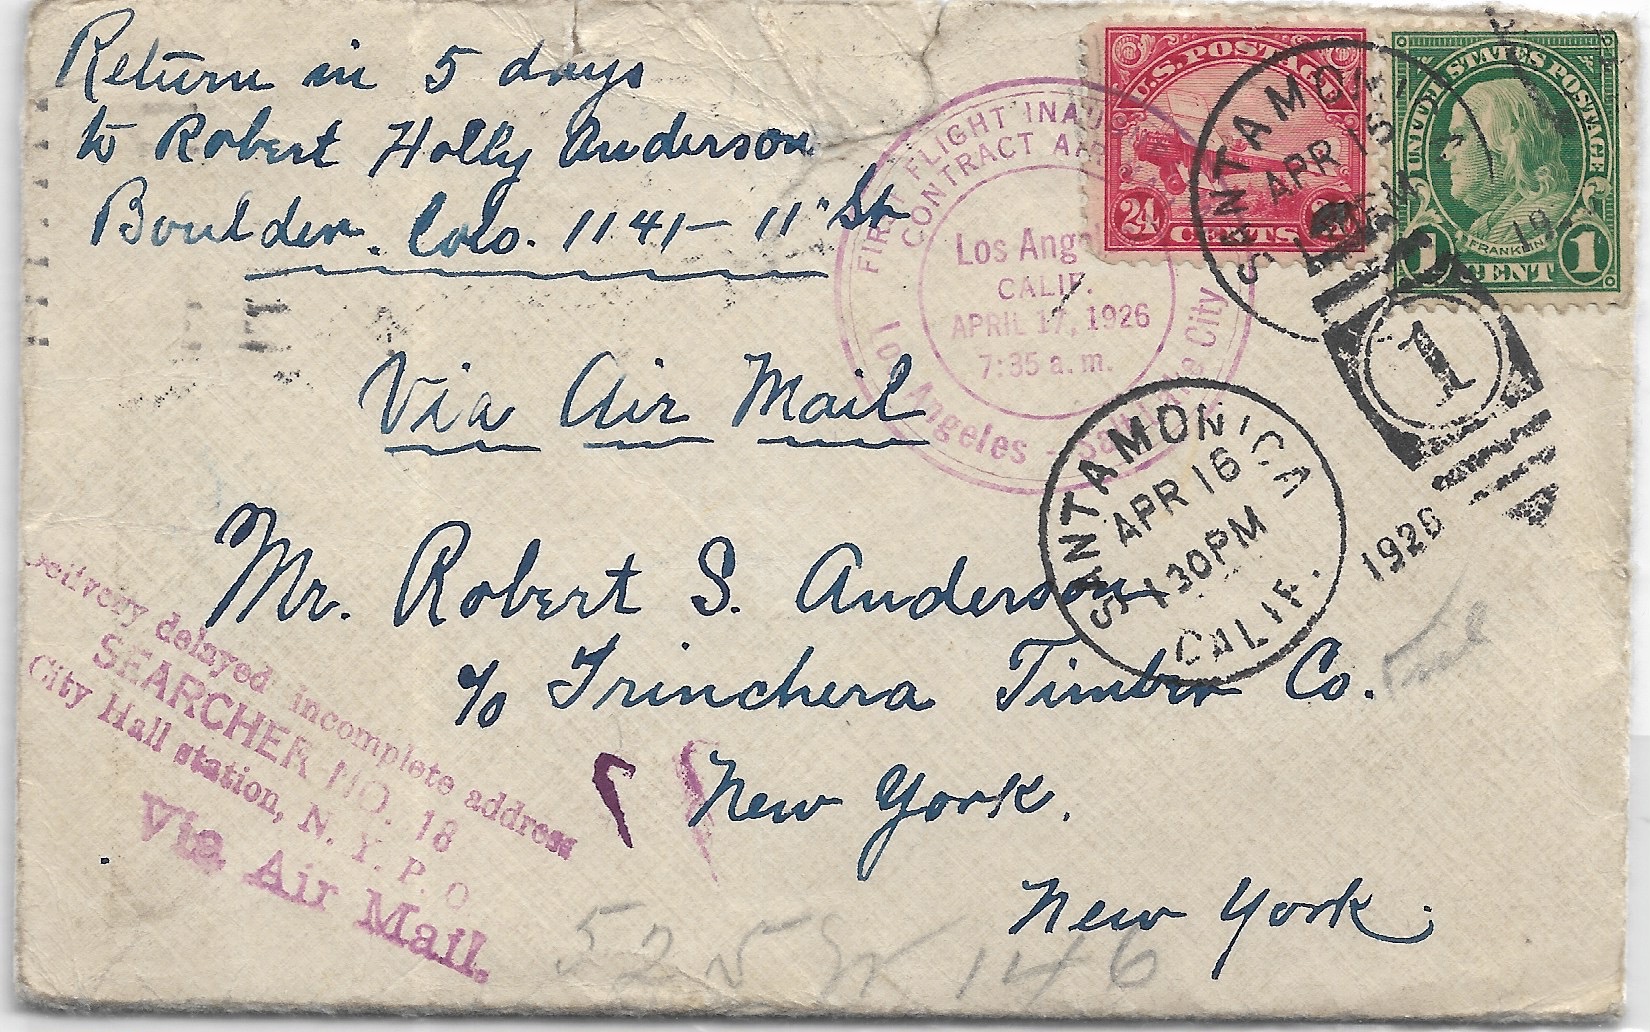 Return in 5 days
to Robert Holly Anderson
Boulder. Colo. 1141 – 11" St
U.S. POSTAGE
24
CENTS
UNITED STATES POSTAGE
FRANKLIN
1 CENT 1
FIRST FLIGHT
CONTRACT
Los Ang
CALIF.
APRIL 17, 1926
7:35 a.m.
Los Angeles - Salt Lake City
SANTA MO
APR 15
1
1926
SANTA MONICA
APR 16
1 30 PM
CALIF.
Via Air Mail
Mr. Robert S. Anderson
c/o Trinchera Timber Co.
New York.
New York.
Delivery delayed incomplete address
SEARCHER NO. 18
City Hall station, N. Y. P. O
Via Air Mail.
525 W 146